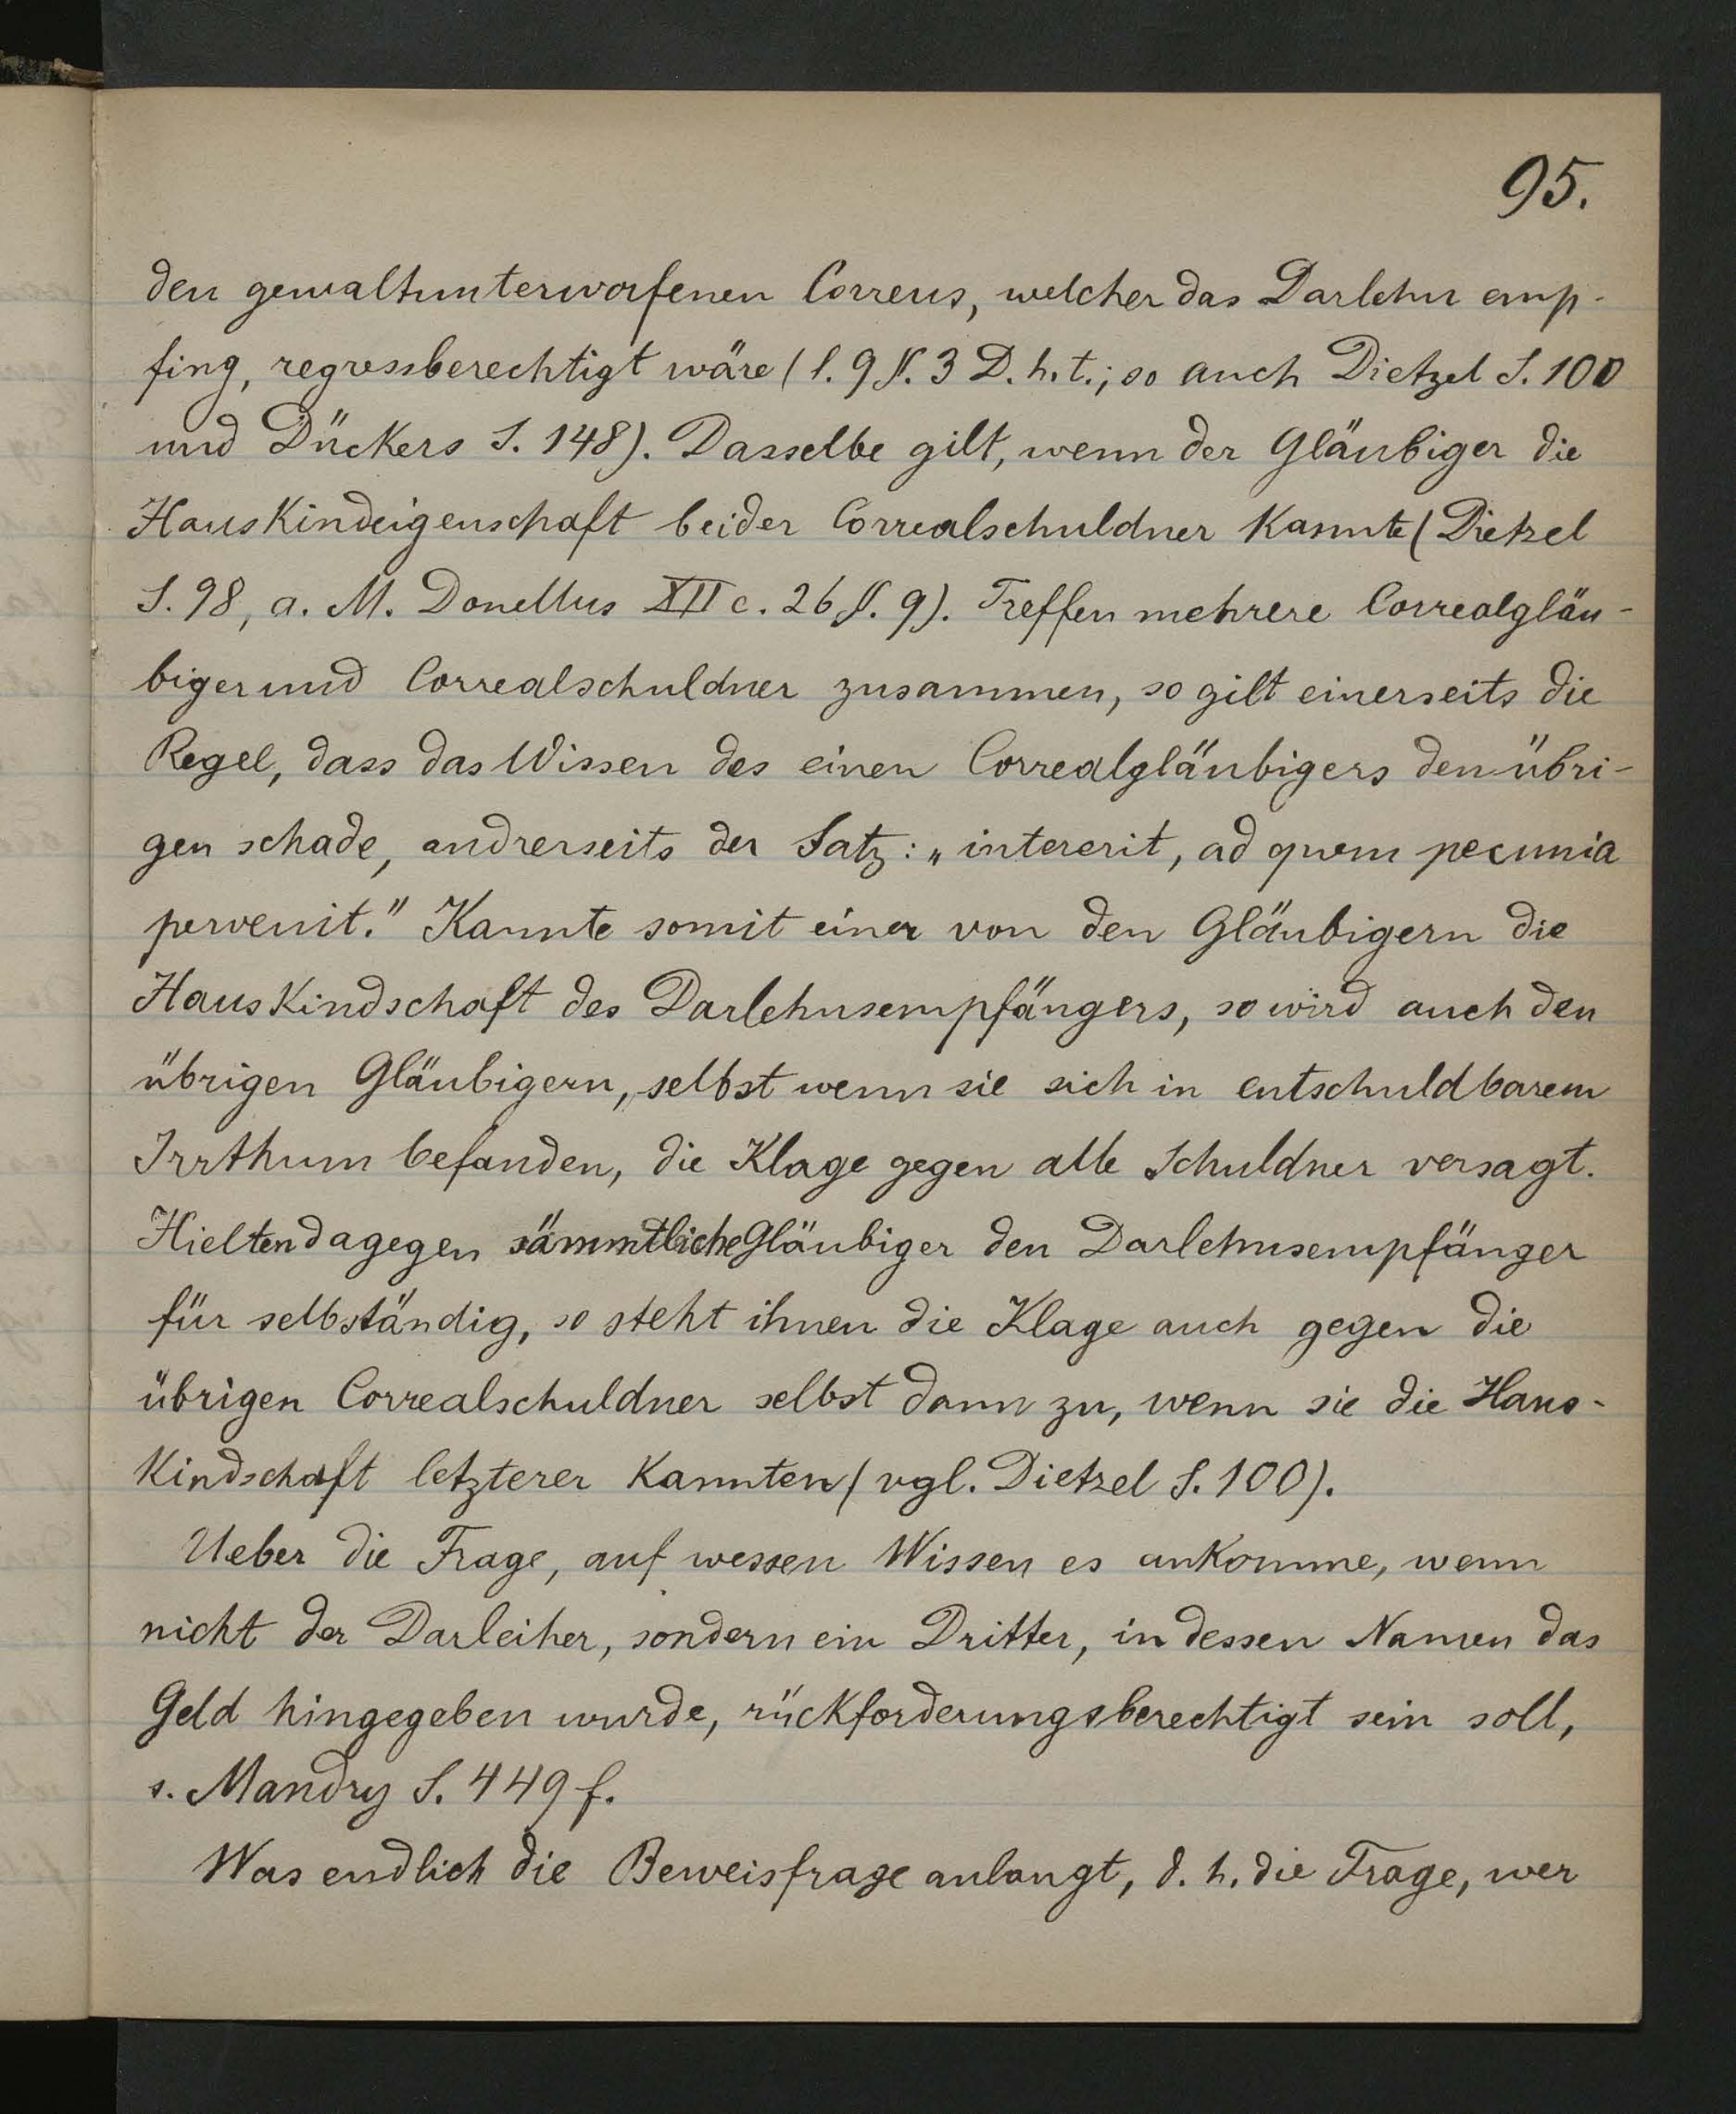 95.
den gewaltunterworfenen Correus, welcher das Darlehn emp-
fing, regressberechtigt wäre (l. 9 §. 3 D. h. t.; so auch Dietzel S. 100
und Dückers S. 148). Dasselbe gilt, wenn der Gläubiger die
Hauskindeigenschaft beider Correalschuldner kannte (Dietzel
S. 98, a. M. Donellus XII c. 26 §. 9). Treffen mehrere Correalgläu-
biger und Correalschuldner zusammen, so gilt einerseits die
Regel, dass das Wissen des einen Correalgläubigers den übri-
gen schade, andrerseits der Satz: „intererit, ad quem pecunia
pervenit." Kannte somit einer von den Gläubigern die
Hauskindschaft des Darlehnsempfängers, so wird auch den
übrigen Gläubigern, selbst wenn sie sich in entschuldbarem
Irrthum befanden, die Klage gegen alle Schuldner versagt.
Hielten dagegen sämmtliche Gläubiger den Darlehnsempfänger
für selbständig, so steht ihnen die Klage auch gegen die
übrigen Correalschuldner selbst dann zu, wenn sie die Haus-
kindschaft letzterer kannten (vgl. Dietzel S. 100).
Ueber die Frage, auf wessen Wissen es ankomme, wenn
nicht der Darleiher, sondern ein Dritter, in dessen Namen das
Geld hingegeben wurde, rückforderungsberechtigt sein soll,
s. Mandry S. 449 f.
Was endlich die Beweisfrage anlangt, d. h. die Frage, wer